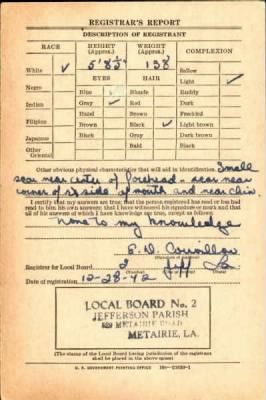 REGISTRAR'S REPORT
DESCRIPTION OF REGISTRANT
RACE HEIGHT (Approx.) WEIGHT (Approx.) COMPLEXION
5' 8½" 138
White ✓ Sallow
EYES HAIR Light ✓
Negro Blue Blonde Ruddy
Indian Gray ✓ Red Dark
Hazel Brown Freckled
Filipino Brown Black ✓ Light brown
Japanese Black Gray Dark brown
Other Oriental Bald Black
Other obvious physical characteristics that will aid in identification Small
scar near center of forehead - scar near
corner of side of mouth and near chin.
I certify that my answers are true; that the person registered has read or has had
read to him his own answers; that I have witnessed his signature or mark and that
all of his answers of which I have knowledge are true, except as follows:
None to my knowledge
Registrar for Local Board 2 Jeff La
Date of registration 12-28-42
LOCAL BOARD No. 2
JEFFERSON PARISH
METAIRIE ROAD
METAIRIE, LA.
(The stamp of the Local Board having jurisdiction of the registrant
shall be placed in the above space.)
U. S. GOVERNMENT PRINTING OFFICE